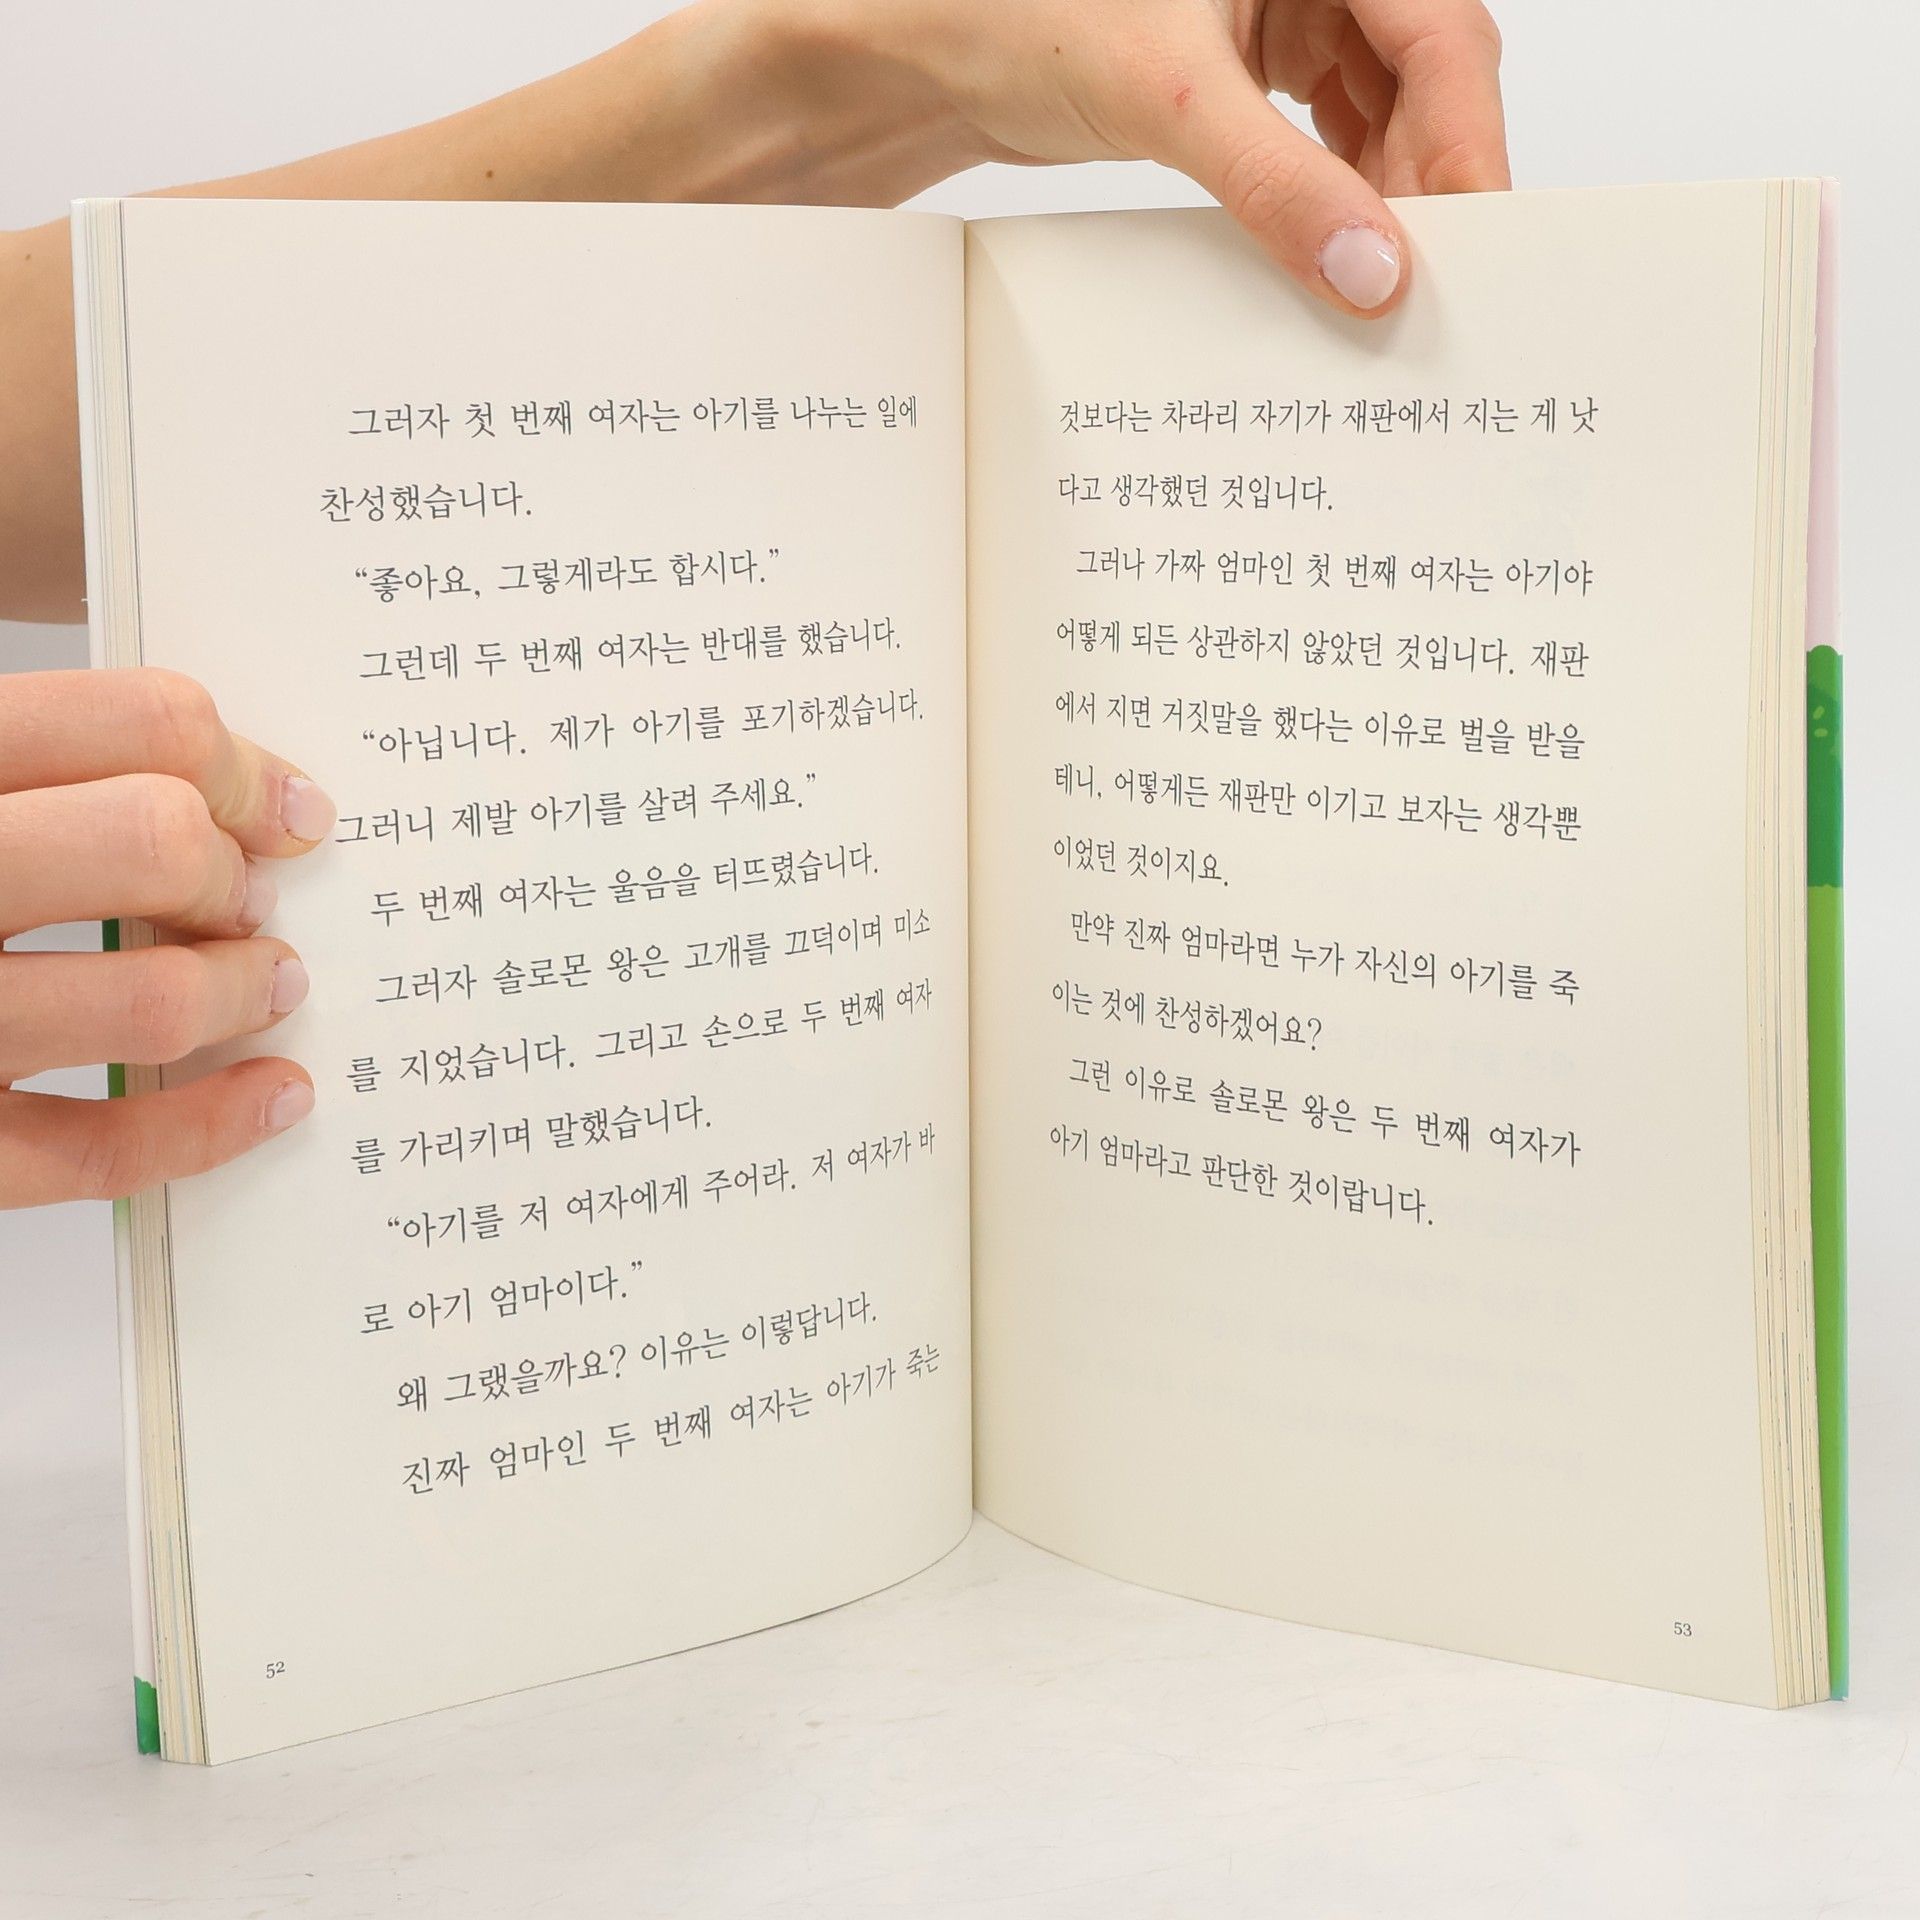 그러자 첫 번째 여자는 아기를 나누는 일에
찬성했습니다.
“좋아요, 그렇게라도 합시다.”
그런데 두 번째 여자는 반대를 했습니다.
“아닙니다. 제가 아기를 포기하겠습니다.
그러니 제발 아기를 살려 주세요.”
두 번째 여자는 울음을 터뜨렸습니다.
그러자 솔로몬 왕은 고개를 끄덕이며 미소
를 지었습니다. 그리고 손으로 두 번째 여자
를 가리키며 말했습니다.
“아기를 저 여자에게 주어라. 저 여자가 바
로 아기 엄마이다.”
왜 그랬을까요? 이유는 이렇답니다.
진짜 엄마인 두 번째 여자는 아기가 죽는
52
것보다는 차라리 자기가 재판에서 지는 게 낫
다고 생각했던 것입니다.
그러나 가짜 엄마인 첫 번째 여자는 아기야
어떻게 되든 상관하지 않았던 것입니다. 재판
에서 지면 거짓말을 했다는 이유로 벌을 받을
테니, 어떻게든 재판만 이기고 보자는 생각뿐
이었던 것이지요.
만약 진짜 엄마라면 누가 자신의 아기를 죽
이는 것에 찬성하겠어요?
그런 이유로 솔로몬 왕은 두 번째 여자가
아기 엄마라고 판단한 것이랍니다.
53